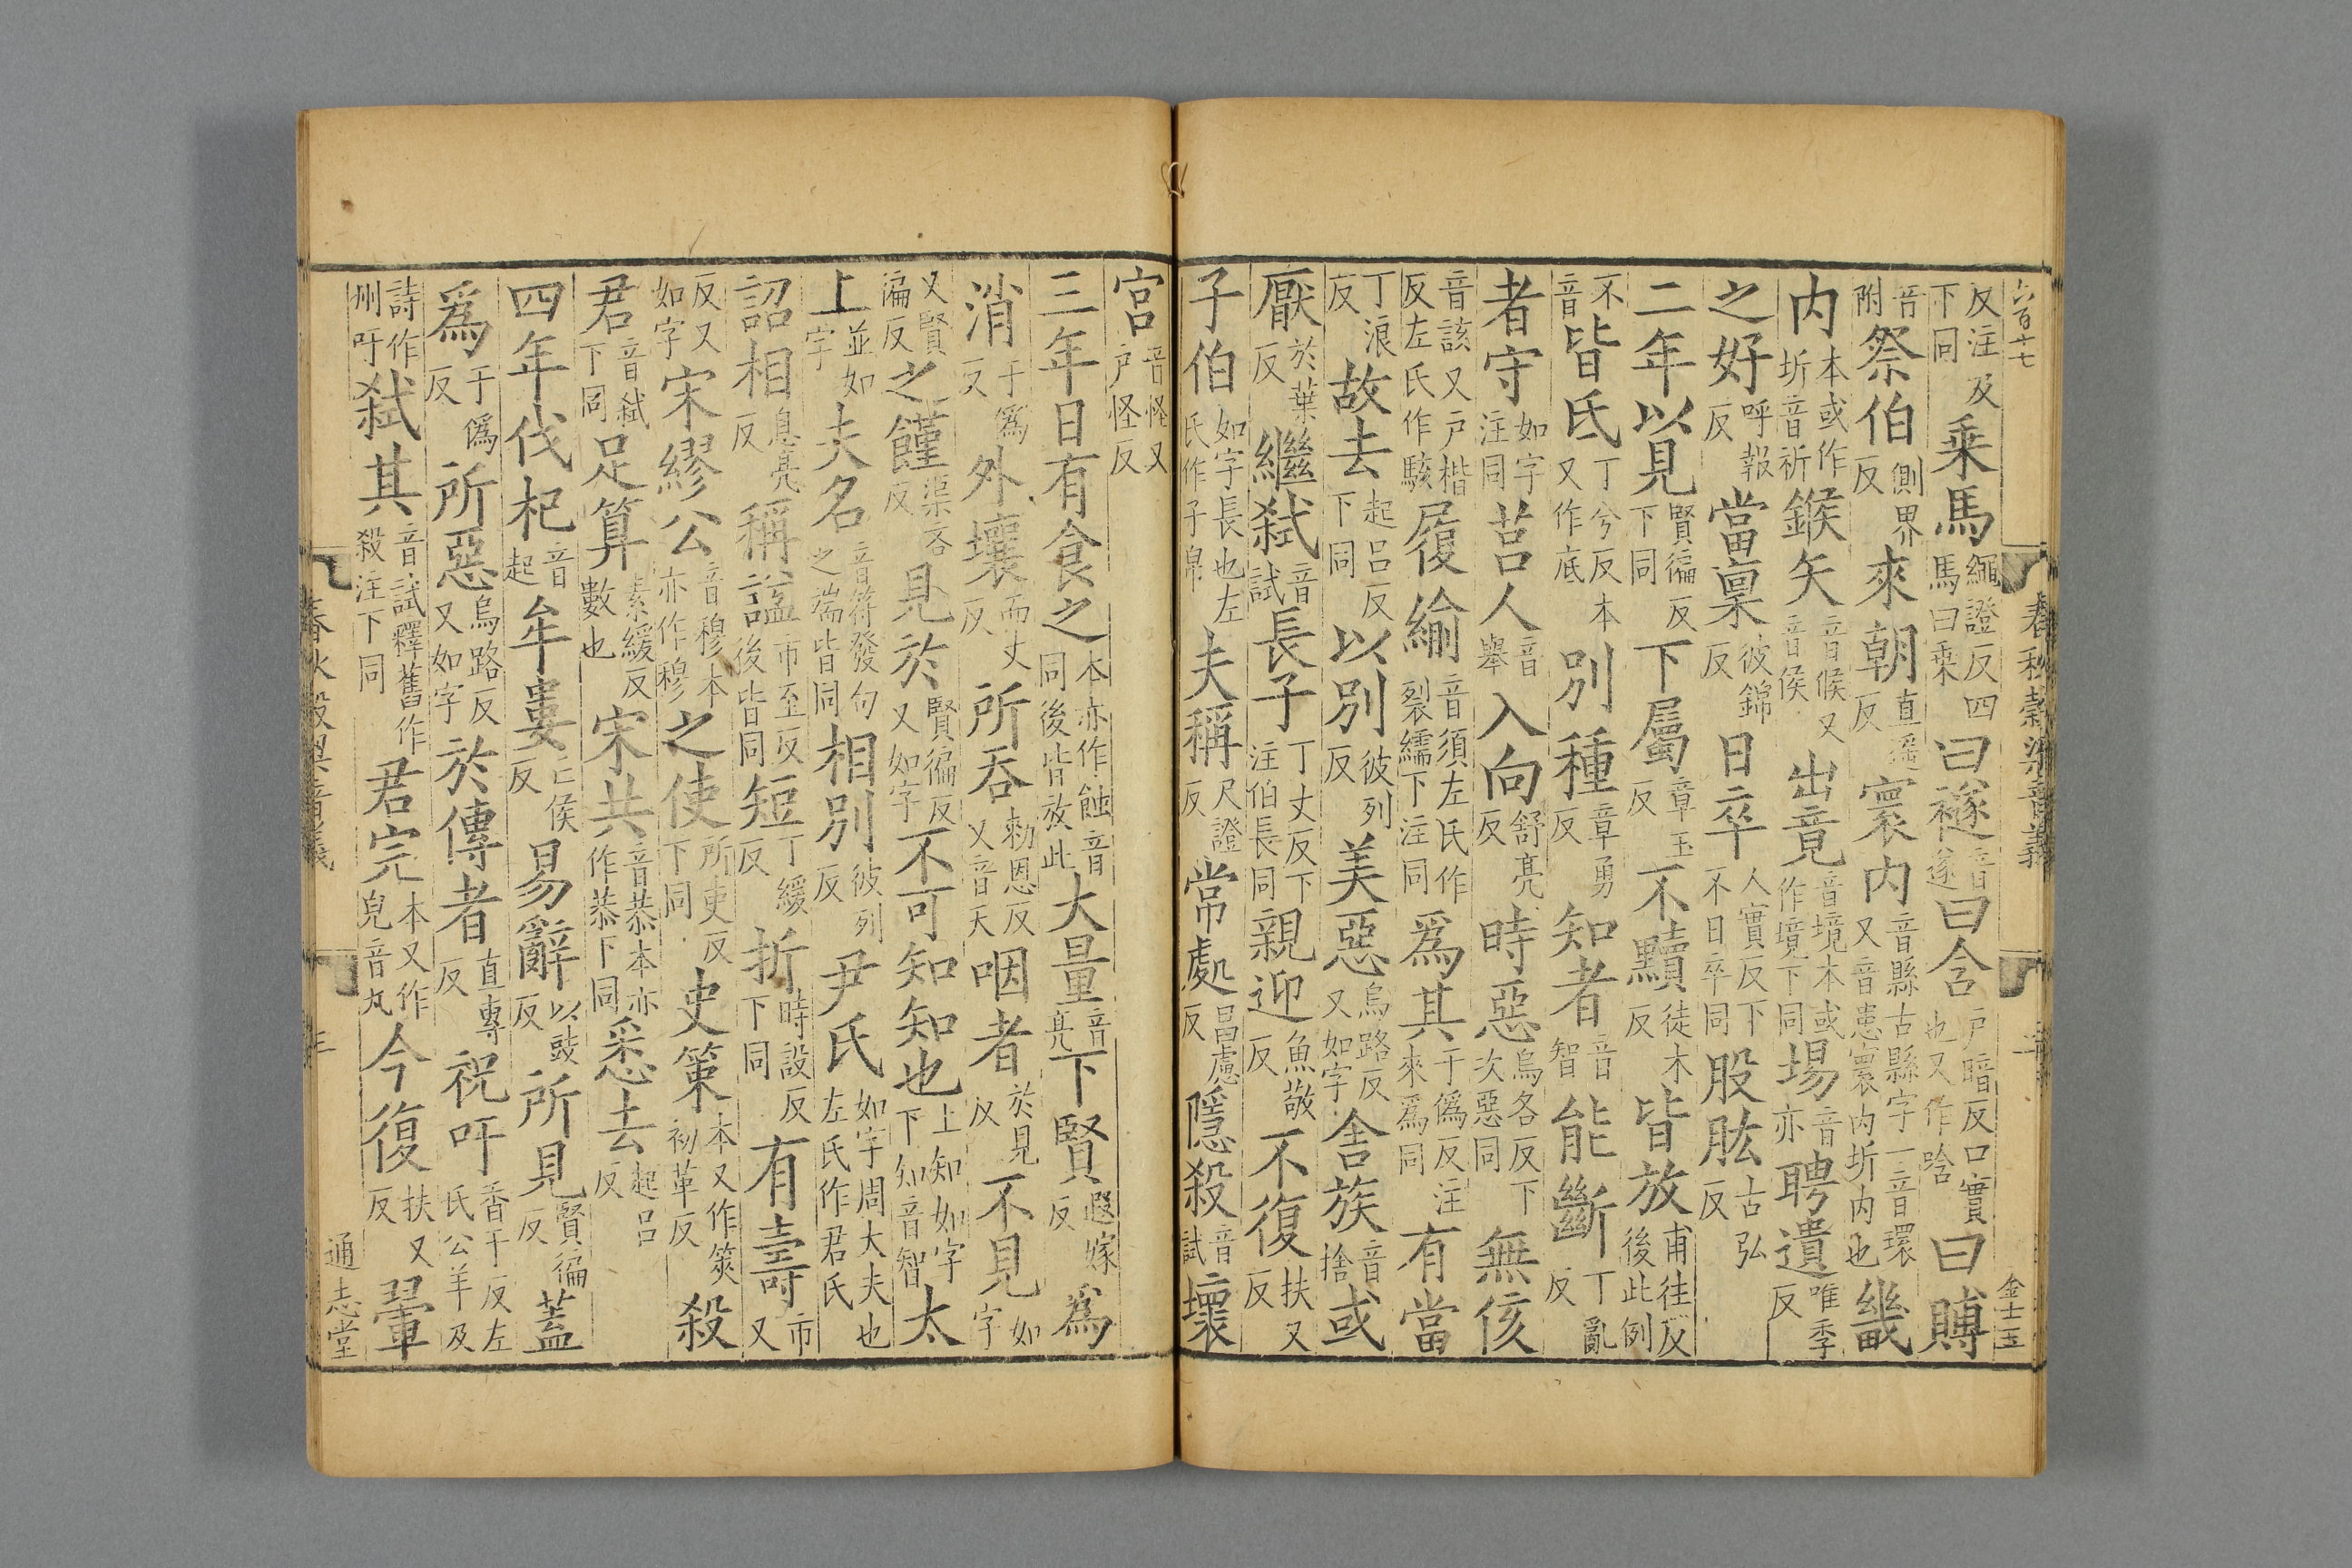 六百十七
春秋穀梁音義
金士玉
反注及下同乘馬繩證反四馬曰乘曰襚音遂曰含戶暗反口實也又作唅曰賵
音附祭伯側界反來朝直遥反寰内音縣古縣字一音環又音患寰内圻内也畿
内本或作圻音祈鍭矢音候又音侯出竟音境本或作境下同場音亦聘遺唯季反
之好呼報反當稟彼錦反日卒人實反下不日卒同股肱古弘反
二年以見賢徧反下同下屬章玉反不黷徒木反皆放甫往反後此例
不音皆氐丁兮反本又作底別種章勇反知者音智能斷丁亂反
者守如字注同莒人音舉入向舒亮反時惡烏各反下次惡同無侅
音該又戶楷反左氏作駭履緰音須左氏作裂繻下注同爲其于僞反注來爲同有當
丁浪反故去起呂反下同以別彼列反美惡烏路反又如字舍族音捨或
厭於葉反繼弑音試長子丁丈反下注伯長同親迎魚敬反不復扶又反
子伯如字長也左氏作子帛夫稱尺證反常處昌慮反隱殺音試壞
宮音怪又户怪反
三年日有食之本亦作蝕音同後皆放此大量音亮下賢遐嫁反爲
消于僞反又外壤而丈反所吞勑恩反又音天咽者於見反不見如字
又賢徧反之饉渠吝反見於賢徧反又如字不可知知也上知如字下知音智太
上並如字夫名音符發句之端皆同相別彼列反尹氏如字周大夫也左氏作君氏
詔相息亮反稱謚市至反後皆同短丁緩反折時設反下同有壽市又
反又如字宋繆公音穆本亦作穆之使所吏反下同史策本又作筴初革反殺
君音弑下同足算素緩反數也宋共音恭本亦作恭下同悉去起呂反
四年伐杞音起牟婁亡侯反易辭以豉反所見賢徧反蓋
爲于僞反所惡烏路反又如字於傳者直專反祝吁香于反左氏公羊及
詩作州吁弑其音試釋舊作殺注下同君完本又作皃音丸今復扶又反翬
春秋穀梁音義
三
通志堂